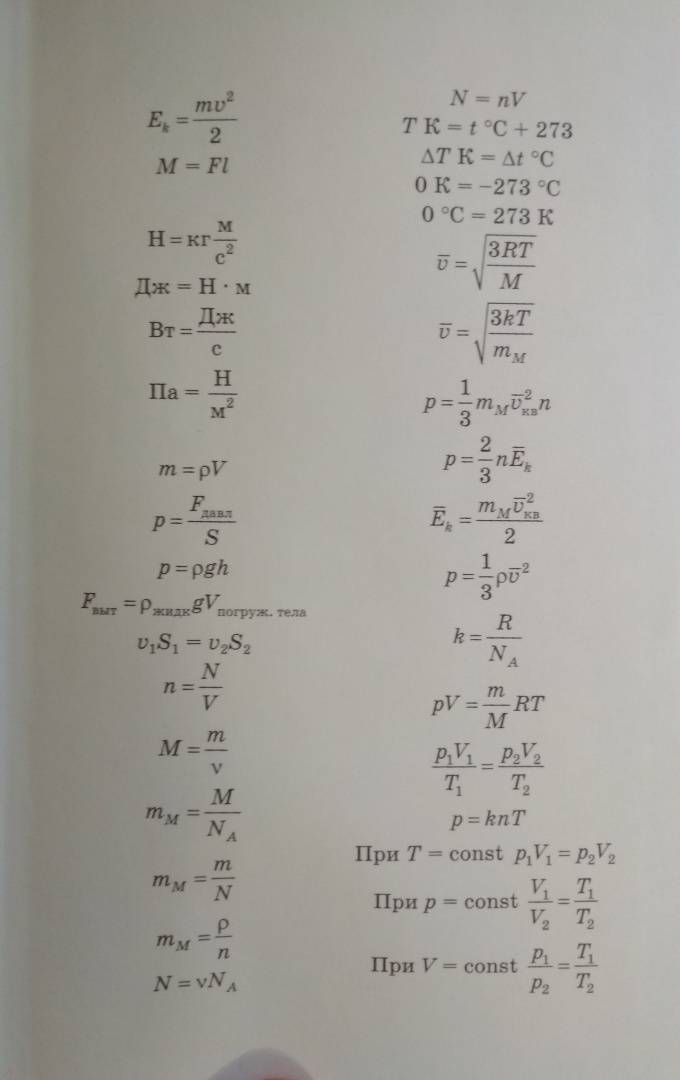 E_k = mv²/2
M = Fl
Н = кг м/с²
Дж = Н · м
Вт = Дж/с
Па = Н/м²
m = ρV
p = F_давл/S
p = ρgh
F_выт = ρ_жидк gV_погруж. тела
v₁S₁ = v₂S₂
n = N/V
M = m/ν
m_M = M/N_A
m_M = m/N
m_M = ρ/n
N = νN_A
N = nV
T К = t °C + 273
ΔT К = Δt °C
0 К = −273 °C
0 °C = 273 К
v̅ = √(3RT/M)
v̅ = √(3kT/m_M)
p = 1/3 m_M v̅²_кв n
p = 2/3 nE̅_k
E̅_k = m_M v̅²_кв/2
p = 1/3 ρv̅²
k = R/N_A
pV = m/M RT
p₁V₁/T₁ = p₂V₂/T₂
p = knT
При T = const p₁V₁ = p₂V₂
При p = const V₁/V₂ = T₁/T₂
При V = const p₁/p₂ = T₁/T₂